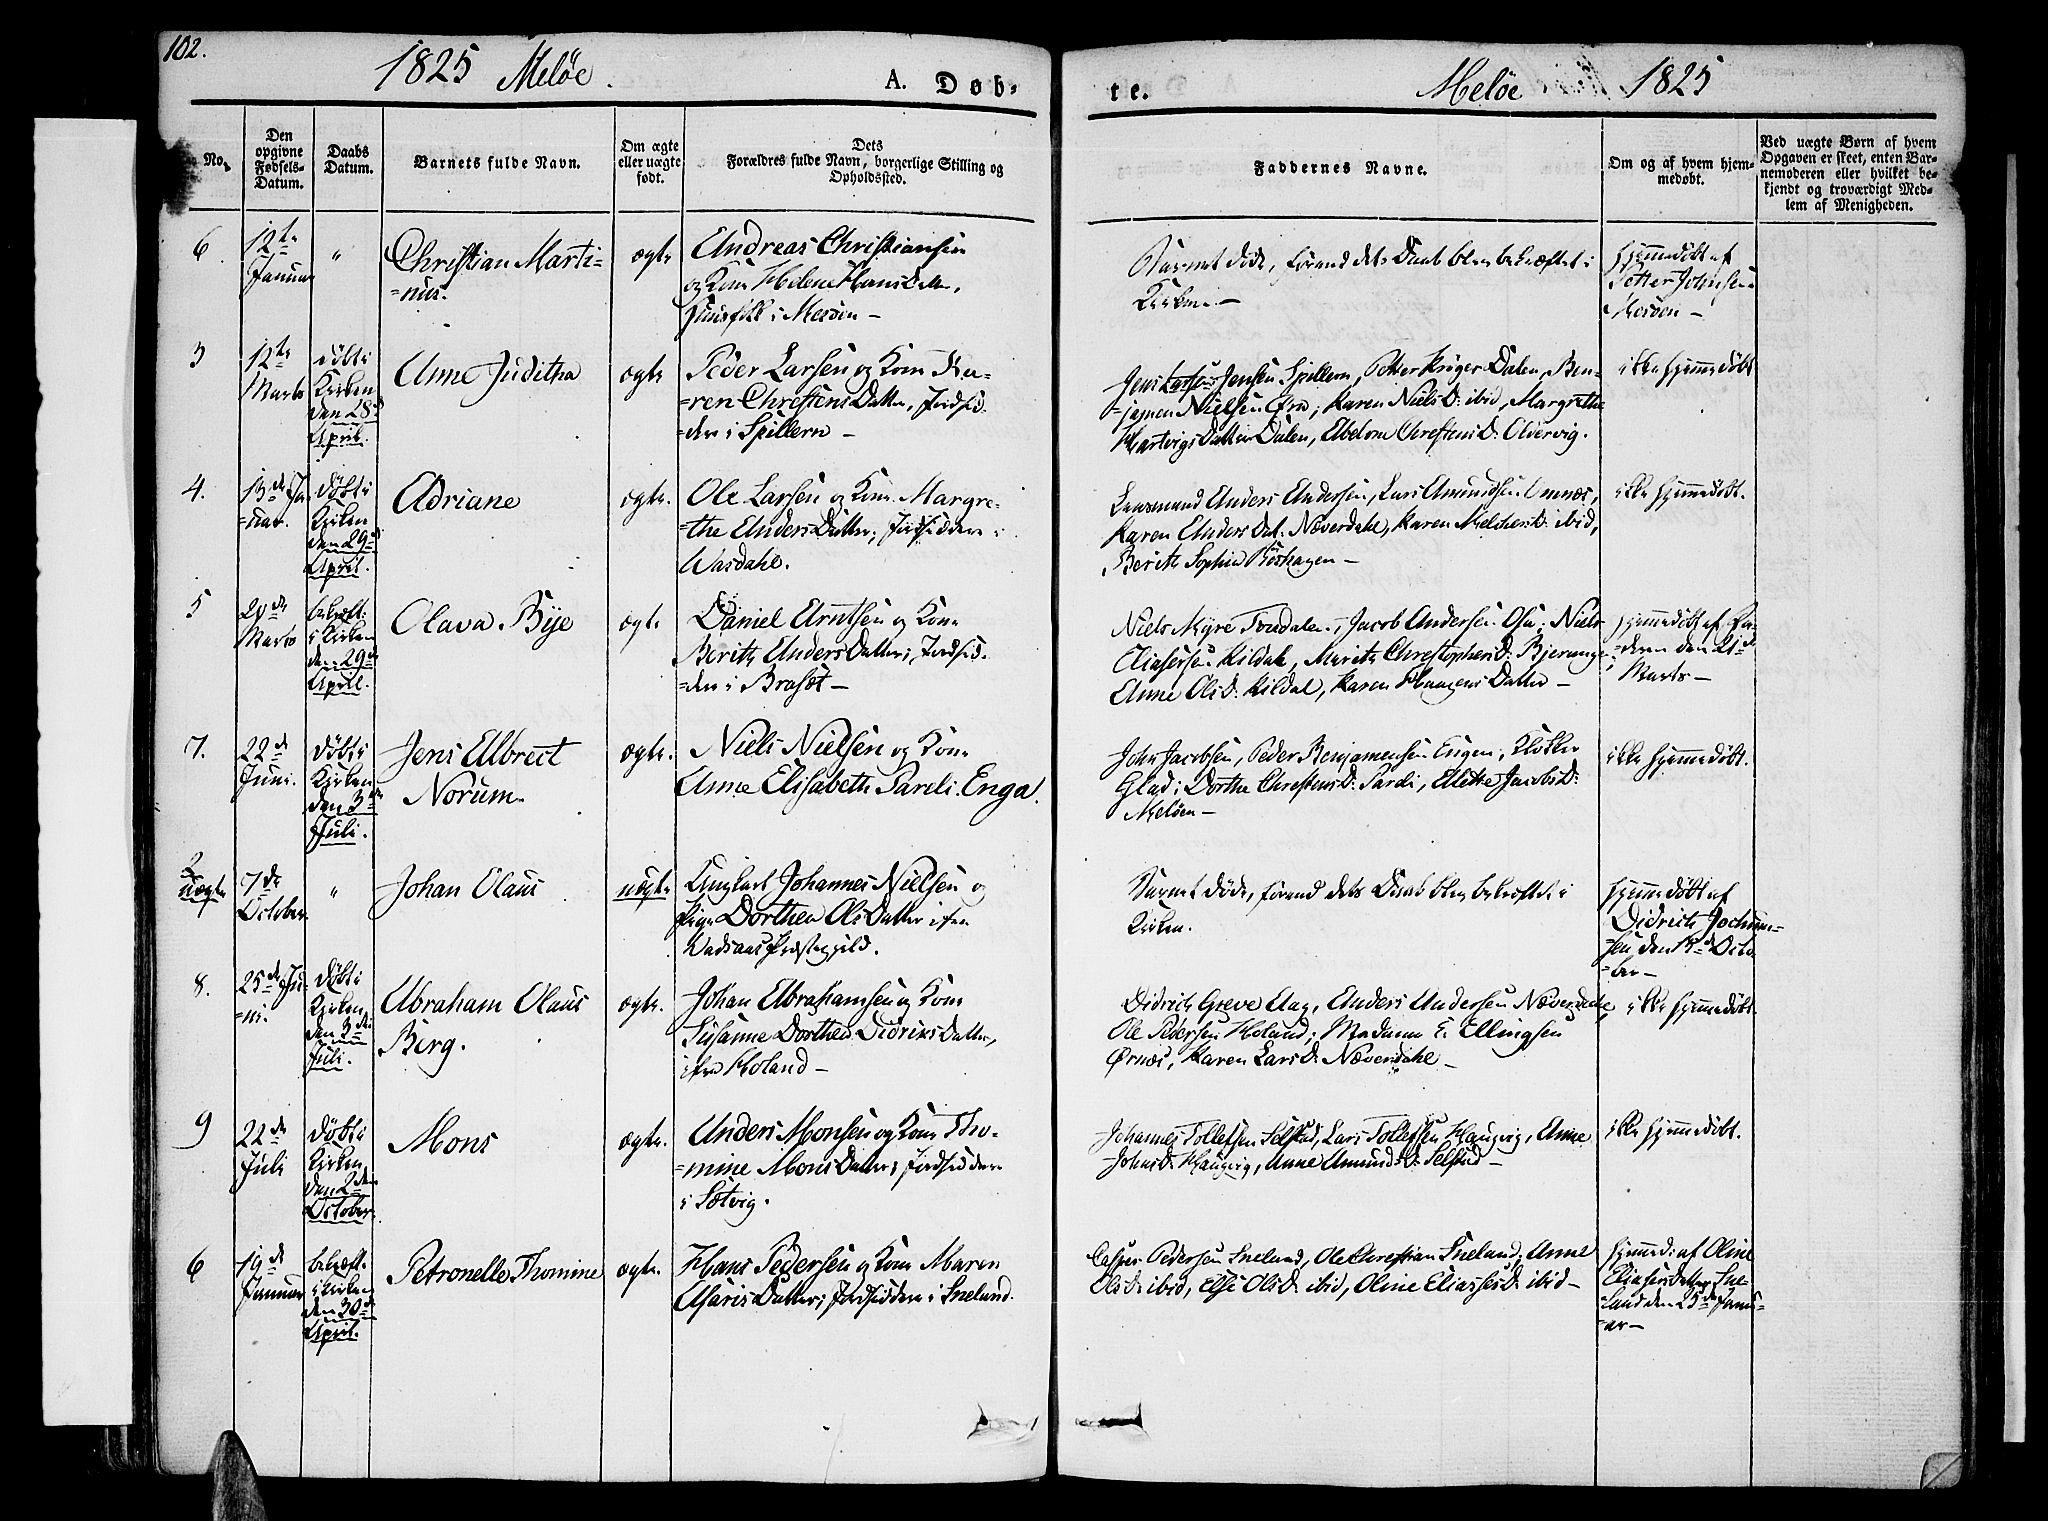 102.
1825 Meløe.
A. Døb-
te.
Meløe 1825
No.
Den
opgivne
Fødsels-
Datum.
Daabs
Datum.
Barnets fulde Navn.
Om ægte
eller uægte
født.
Dets
Forældres fulde Navn, borgerlige Stilling og
Opholdssted.
Faddernes Navne.
Om og af hvem hjem-
medøbt.
Ved uægte Børn af hvem
Opgaven er skeet, enten Bar-
nemoderen eller hvilket be-
kjendt og troværdigt Med-
lem af Menigheden.
6
12te
Januar
"
Christian Marti-
=nus.
ægte
Andreas Christiansen
og Kone Helene HansDatter,
Huusfolk i Mesøen -
Barnet døde, førend dets Daab blev bekræftet i
Kirken. -
hjemmedøbt af
Petter Johnsen
Mesøen -
3
12te
Marts
døbt i
Kirken
den 28d
April.
Anne Juditha
ægte
Peder Larsen og Kone Ka-
=ren ChrestensDatter, Jordsid-
=dere i Spillern -
Jens Jensen Spillern, Petter Krüger Dalen, Ben-
=jamen Nielsen Øra; Karen NielsD: ibid, Margrethe
HartvigsDatter Dalen, ChrestensD:
ikke hjemmedøbt
4.
13de Ja-
=nuar.
døbt i
Kirken
den 29d
April.
Adriane
ægte.
Ole Larsen og Kone Margre-
=the AndersDatter, Jordsiddere i
Wasdahl.
Lensmand Anders Andersen, Lars Amundsen
Karen Anders Dat: Næverdahl, Karen MelchersD: ibid,
Berith Sophia Röshagen -
ikke hjemmedøbt.
5
20de
Marts
bekræft:
i Kirken
den 29d
April.
Olava Bye
ægte
Daniel Arntsen og Kone
Berith AndersDatter, Jordsid-
=dere i Brasæt -
Niels Myre Jacob Andersen Niels
Eliasersen Kildal, Marith ChrestophersD: Bjerange
Anne OlsD: Kildal, Karen HaagensDatter -
hjemmedøbt af Fa-
=deren den 21de
Marts -
7.
22de
Juni.
døbt i
Kirken
den 3de
Juli.
Jens Albrect
Norum
ægte.
Niels Nielsen og Kone
Anne Elisabeth Pareli Enga.
John Jacobsen, Peder Benjamensen Engen, Klokker
Glad; Dorthe ChrestensD: Alethe JacobsD:
Meløen -
ikke hjemmedøbt.
2
uægte
7de
October
"
Johan Olaus
uægte
Ungkarl Johannes Nielsen og
Pige Dorthea OlsDatter ifra
Præstegjeld.
Barnet døde, førend dets Daab blev bekræftet i
Kirken.
hjemmedøbt af
Didrich Jochum-
=sen den Octo-
=ber -
8.
25de Ju-
=ni.
døbt i
Kirken
den 3de
Juli.
Abraham Olaus
Berg.
ægte.
Johan Abrahamsen og Kone
Susanne Dorthea DidriksDatter,
ifra Holand -
Didrich Greve Aag, Anders Andersen Næverdahl,
Ole Pedersen Holand; Madame E. Ellingsen
Ørnæs, Karen LarsD: Næverdahl -
ikke hjemmedøbt.
9
22de
Juli
døbt i
Kirken
den 2den
October.
Mons
ægte.
Anders Monsen og Kone Tho-
=mine MonsDatter, Jordsiddere
i Sætvig.
Johannes Tollefsen Selstad, Lars Tollefsen Haugvig, Anne
JohnsD: Haugvig, Anne AmundsD: Selstad -
ikke hjemmedøbt.
6
19de
Januar
bekræft:
i Kirken
den 30d
April.
Petronelle Thomine
ægte.
Hans Pedersen og Kone Maren
AsarisDatter; Jordsiddere i Sneland.
Casper Pedersen Sneland, Ole Chrestian Sneland; Anne
OlsD: ibid, Else OlsD: ibid, Oline EliasersD: ibid -
hjemmed: af Oline
EliasersDatter Sne-
=land den 25de Janu-
=ar -